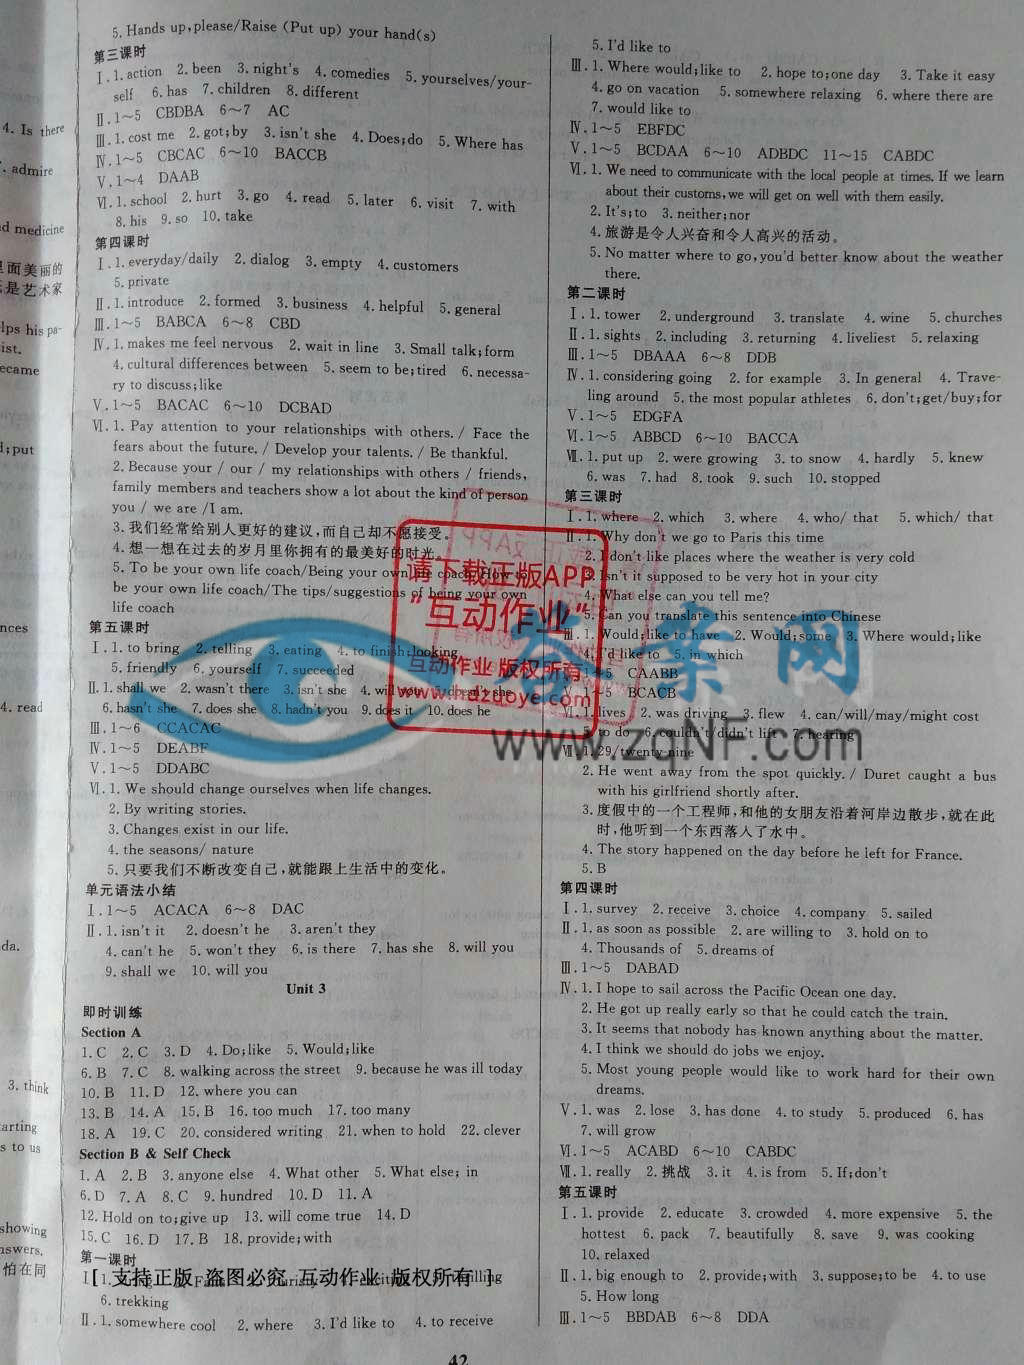 4. Is there
. admire
d medicine
里面美丽的
是艺术家
lps his pa-
ist.
ecame
d;put
nces
4. read
da.
3. think
tarting
s to us
showing
nswers.
怕在同
5. Hands up,please/Raise (Put up) your hand(s)
第三课时
Ⅰ. 1. action 2. been 3. night's 4. comedies 5. yourselves/your-
self 6. has 7. children 8. different
Ⅱ. 1~5 CBDBA 6~7 AC
Ⅲ. 1. cost me 2. got;by 3. isn't she 4. Does;do 5. Where has
Ⅳ. 1~5 CBCAC 6~10 BACCB
Ⅴ. 1~4 DAAB
Ⅵ. 1. school 2. hurt 3. go 4. read 5. later 6. visit 7. with
8. his 9. so 10. take
第四课时
Ⅰ. 1. everyday/daily 2. dialog 3. empty 4. customers
5. private
Ⅱ. 1. introduce 2. formed 3. business 4. helpful 5. general
Ⅲ. 1~5 BABCA 6~8 CBD
Ⅳ. 1. makes me feel nervous 2. wait in line 3. Small talk;form
4. cultural differences between 5. seem to be;tired 6. necessa-
ry to discuss;like
Ⅴ. 1~5 BACAC 6~10 DCBAD
Ⅵ. 1. Pay attention to your relationships with others. / Face the
fears about the future. / Develop your talents. / Be thankful.
2. Because your / our / my relationships with others / friends,
family members and teachers show a lot about the kind of person
you / we are /I am.
3. 我们经常给别人更好的建议,而自己却不愿接受。
4. 想一想在过去的岁月里你拥有的最美好的时光。
5. To be your own life coach/Being your own life coach/How to
be your own life coach/The tips/suggestions of being your own
life coach
第五课时
Ⅰ. 1. to bring 2. telling 3. eating 4. to finish;looking
5. friendly 6. yourself 7. succeeded
Ⅱ. 1. shall we 2. wasn't there 3. isn't she 4. will you 5. doesn't she
6. hasn't she 7. does she 8. hadn't you 9. does it 10. does he
Ⅲ. 1~6 CCACAC
Ⅳ. 1~5 DEABF
Ⅴ. 1~5 DDABC
Ⅵ. 1. We should change ourselves when life changes.
2. By writing stories.
3. Changes exist in our life.
4. the seasons/ nature
5. 只要我们不断改变自己,就能跟上生活中的变化。
单元语法小结
Ⅰ. 1~5 ACACA 6~8 DAC
Ⅱ. 1. isn't it 2. doesn't he 3. aren't they
4. can't he 5. won't they 6. is there 7. has she 8. will you
9. shall we 10. will you
Unit 3
即时训练
Section A
1. C 2. C 3. D 4. Do;like 5. Would;like
6. B 7. C 8. walking across the street 9. because he was ill today
10. B 11. D 12. where you can
13. B 14. A 15. B 16. too much 17. too many
18. A 19. C 20. considered writing 21. when to hold 22. clever
Section B & Self Check
1. A 2. B 3. anyone else 4. What other 5. What else; in
6. D 7. A 8. C 9. hundred 10. D 11. A
12. Hold on to;give up 13. will come true 14. D
15. C 16. D 17. B 18. provide;with
第一课时
[ 支持正版 盗图必究 互动作业 版权所有 ]
6. trekking
Ⅱ. 1. somewhere cool 2. where 3. I'd like to 4. to receive
5. I'd like to
Ⅲ. 1. Where would;like to 2. hope to;one day 3. Take it easy
4. go on vacation 5. somewhere relaxing 6. where there are
7. would like to
Ⅳ. 1~5 EBFDC
Ⅴ. 1~5 BCDAA 6~10 ADBDC 11~15 CABDC
Ⅵ. 1. We need to communicate with the local people at times. If we learn
about their customs,we will get on well with them easily.
2. It's;to 3. neither;nor
4. 旅游是令人兴奋和令人高兴的活动。
5. No matter where to go,you'd better know about the weather
there.
第二课时
Ⅰ. 1. tower 2. underground 3. translate 4. wine 5. churches
Ⅱ. 1. sights 2. including 3. returning 4. liveliest 5. relaxing
Ⅲ. 1~5 DBAAA 6~8 DDB
Ⅳ. 1. considering going 2. for example 3. In general 4. Trave-
ling around 5. the most popular athletes 6. don't;get/buy;for
Ⅴ. 1~5 EDGFA
Ⅵ. 1~5 ABBCD 6~10 BACCA
Ⅶ. 1. put up 2. were growing 3. to snow 4. hardly 5. knew
6. was 7. had 8. took 9. such 10. stopped
第三课时
Ⅰ. 1. where 2. which 3. where 4. who/ that 5. which/ that
Ⅱ. 1. Why don't we go to Paris this time
2. I don't like places where the weather is very cold
3. Isn't it supposed to be very hot in your city
4. What else can you tell me?
5. Can you translate this sentence into Chinese
Ⅲ. 1. Would;like to have 2. Would;some 3. Where would;like
4. I'd like to 5. in which
Ⅳ. 1~5 CAABB
Ⅴ. 1~5 BCACB
Ⅵ. 1. lives 2. was driving 3. flew 4. can/will/may/might cost
5. to do 6. couldn't/didn't lift 7. hearing
Ⅶ. 1. 29/twenty-nine
2. He went away from the spot quickly. / Duret caught a bus
with his girlfriend shortly after.
3. 度假中的一个工程师,和他的女朋友沿着河岸边散步,就在此
时,他听到一个东西落入了水中。
4. The story happened on the day before he left for France.
5. B
第四课时
Ⅰ. 1. survey 2. receive 3. choice 4. company 5. sailed
Ⅱ. 1. as soon as possible 2. are willing to 3. hold on to
4. Thousands of 5. dreams of
Ⅲ. 1~5 DABAD
Ⅳ. 1. I hope to sail across the Pacific Ocean one day.
2. He got up really early so that he could catch the train.
3. It seems that nobody has known anything about the matter.
4. I think we should do jobs we enjoy.
5. Most young people would like to work hard for their own
dreams.
Ⅴ. 1. was 2. lose 3. has done 4. to study 5. produced 6. has
7. will grow
Ⅵ. 1~5 ACABD 6~10 CABDC
Ⅶ. 1. really 2. 挑战 3. it 4. is from 5. If;don't
第五课时
Ⅰ. 1. provide 2. educate 3. crowded 4. more expensive 5. the
hottest 6. pack 7. beautifully 8. save 9. was cooking
10. relaxed
Ⅱ. 1. big enough to 2. provide;with 3. suppose;to be 4. to use
5. How long
Ⅲ. 1~5 BBDAB 6~8 DDA
42
请下载正版APP
“互动作业”
互动作业 版权所有
www.hdzuoye.com
答案网
www.zqNF.com